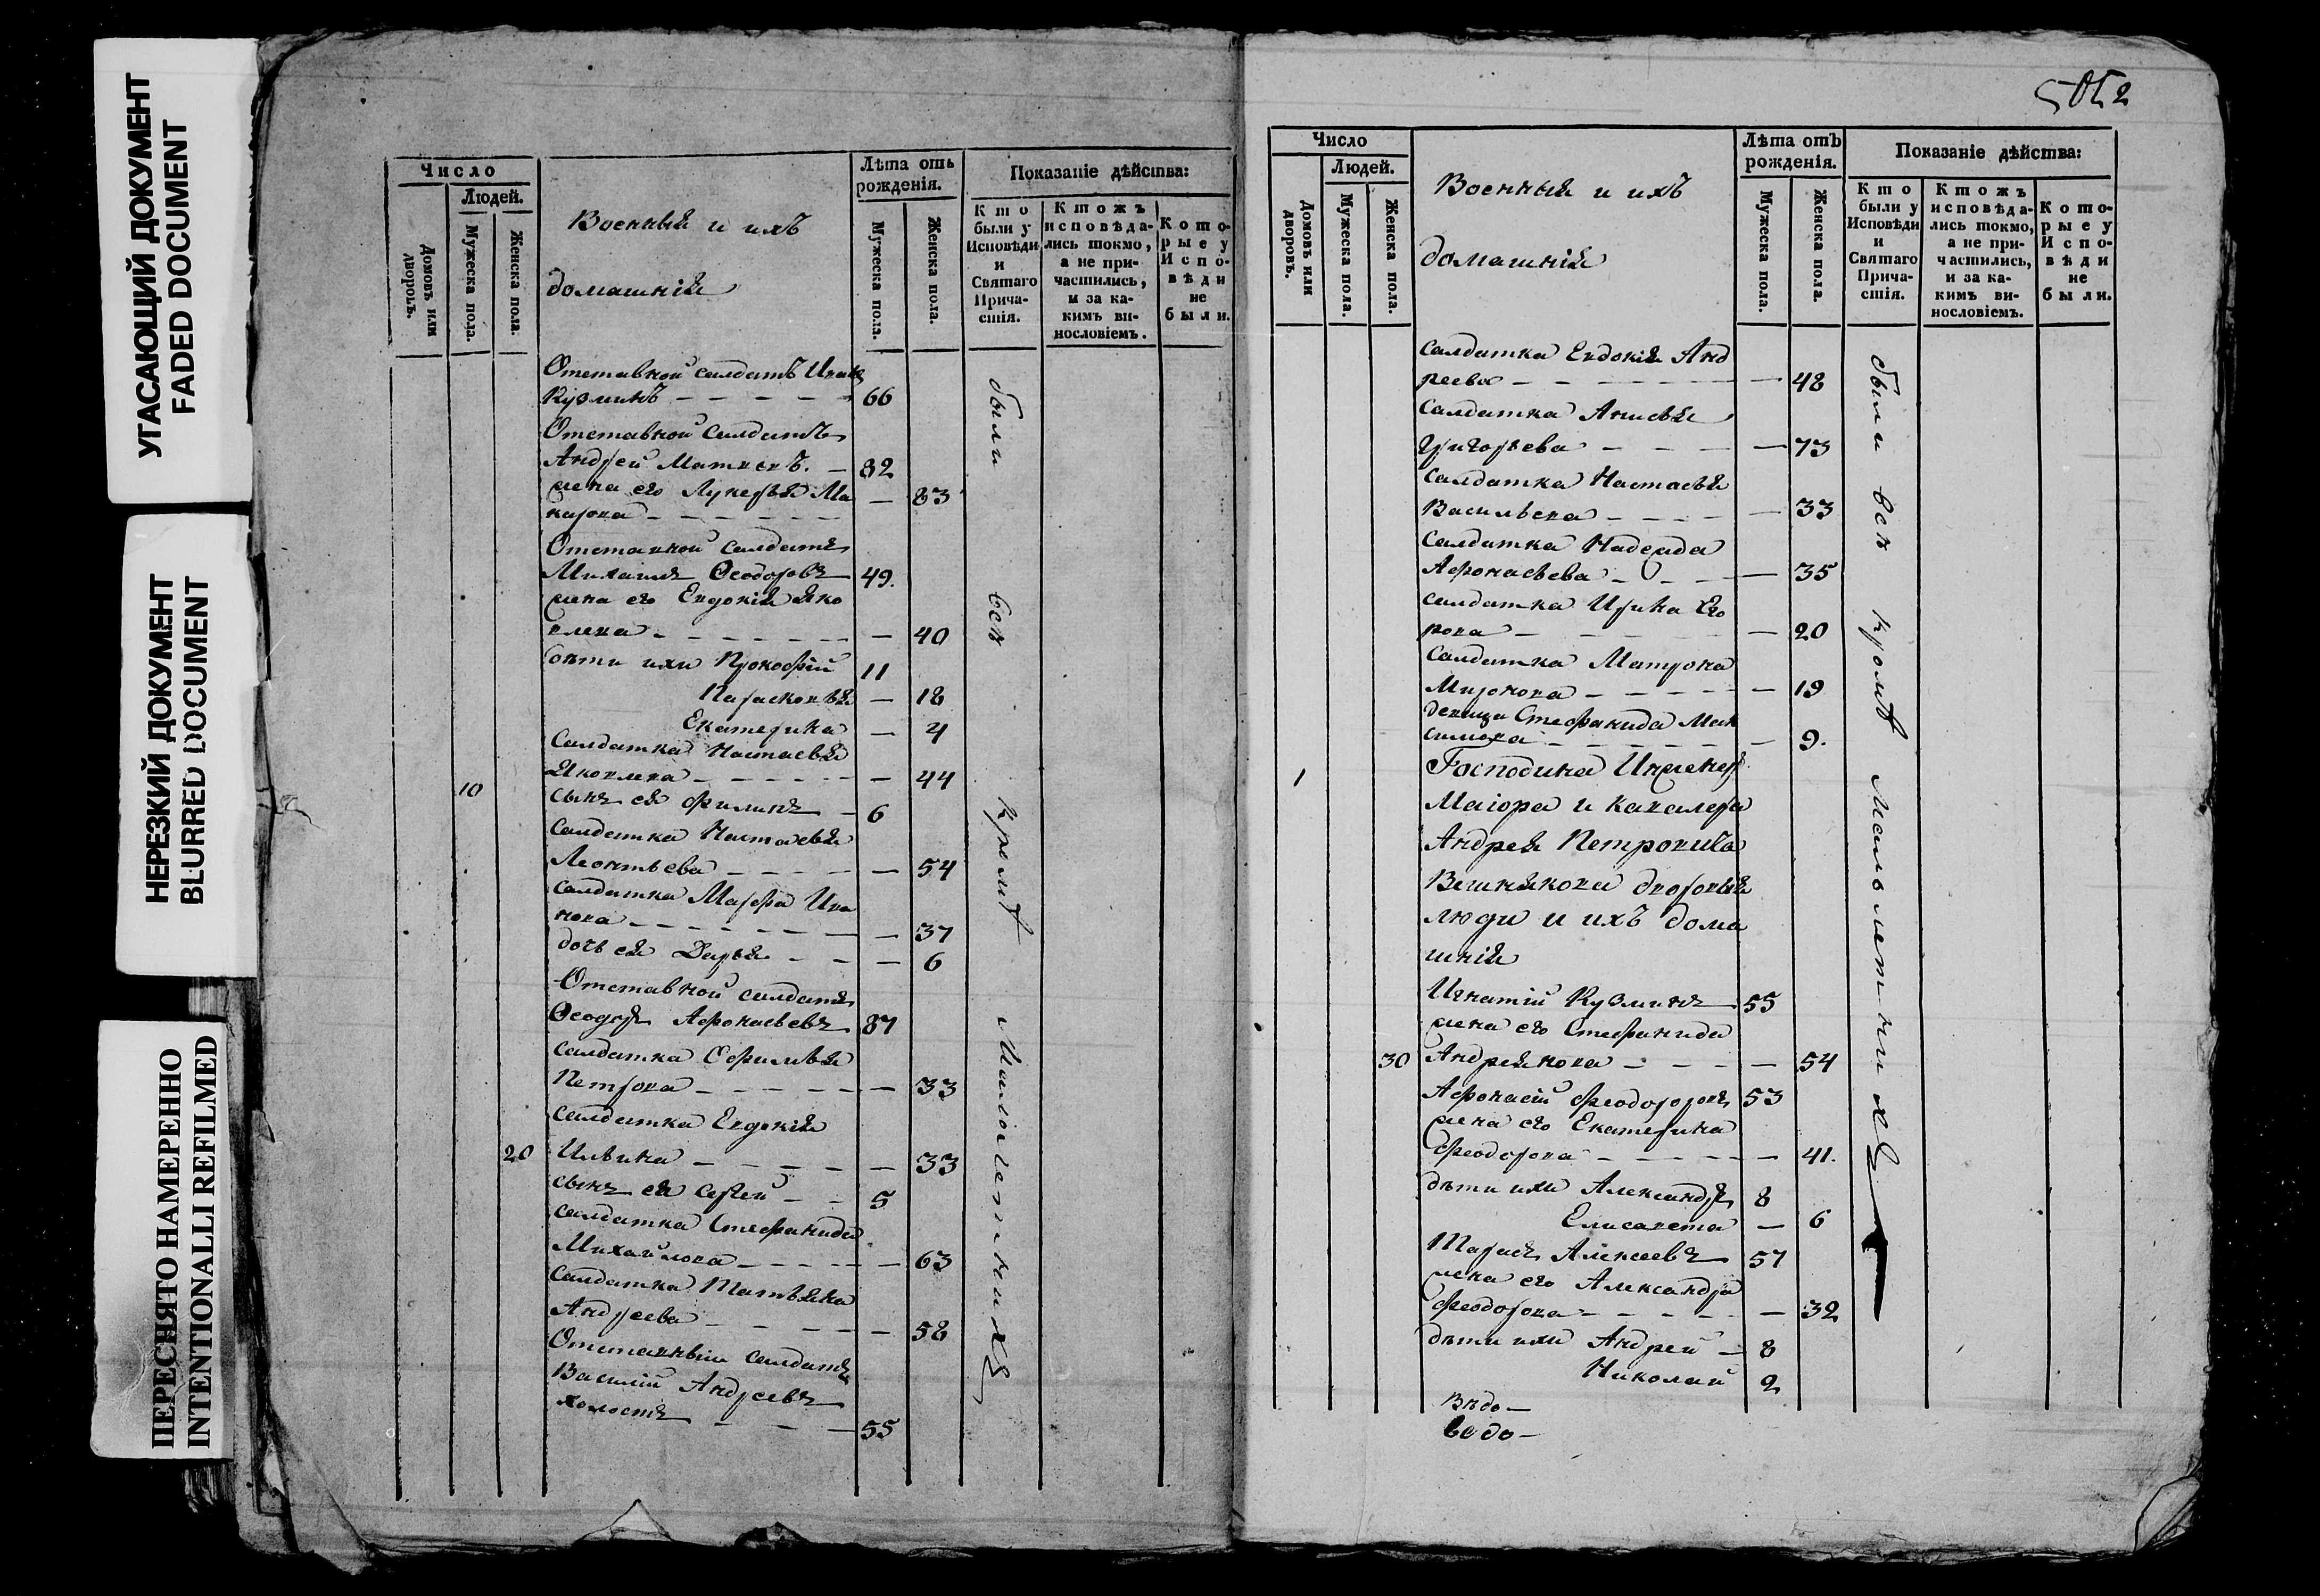 УГАСАЮЩИЙ ДОКУМЕНТ
FADED DOCUMENT
НЕРЕЗКИЙ ДОКУМЕНТ
BLURRED DOCUMENT
ПЕРЕСНЯТО НАМЕРЕННО
INTENTIONALLI REFILMED
Число
Людей.
Домовъ или дворовъ.
Мужеска пола.
Женска пола.
Военныя и ихъ
домашнія
Лѣта отъ рожденія.
Мужеска пола.
Женска пола.
Показаніе дѣйства:
Кто были у Исповѣди и Святаго Причастія.
Ктожъ исповѣдались токмо, а не причастились, и за какимъ винословіемъ.
Которые у Исповѣди не были.
Отставной салдатъ Иванъ
Кузминъ — 66
Отставной салдатъ
Андрей Матвевъ. — 82
жена его Лукерья Ма — 83
карова
Отставной салдатъ
Михаилъ Ѳеодоровъ 49.
жена его Евдокія Яко
влева — 40
дѣти ихъ Прокофій 11
Парасковья — 18
Екатерина — 4
Салдатка Настасья
Яковлева — 44
10 сынъ ея Филипъ — 6
Салдатка Настасья
Леонтьева — 54
салдатка Марфа Ива
нова — 37
дочь ея Дарья — 6
Отставной салдатъ
Ѳеодоръ Афонасьевъ 87
салдатка Софилья
Петрова — 33
салдатка Евдокія
20 Ильина — 33
сынъ ея Сергей — 5
салдатка Стефанида
Михайлова — 63
салдатка Татьяна
Андреева — 58
Отставный салдатъ
Василій Андреевъ
холостъ — 55
были всѣ кромѣ Малолетнихъ
5052
Число
Людей.
Домовъ или дворовъ.
Мужеска пола.
Женска пола.
Военныя и ихъ
домашнія
Лѣта отъ рожденія.
Мужеска пола.
Женска пола.
Показаніе дѣйства:
Кто были у Исповѣди и Святаго Причастія.
Ктожъ исповѣдались токмо, а не причастились, и за какимъ винословіемъ.
Которые у Исповѣди не были.
салдатка Евдокія Анд
реева — 48
Салдатка Анисья
Григорьева — 73
Салдатка Настасья
Васильева — 33
Салдатка Надежда
Афонасьева — 35
салдатка Ирина Его
рова — 20
Салдатка Матрона
Миронова — 19
девица Стефанида Мак
симова — 9.
1 Господина Инженеръ
Маіора и кавалера
Андрея Петровича
Вешнякова дворовыя
люди и ихъ дома
шнія
Игнатій Кузминъ 55
жена его Стефанида
30 Андреянова — 54
Афонасій Феодоровъ 53
жена его Екатерина
Феодорова — 41.
дѣти ихъ Александръ 8
Елисавета — 6
Тарасъ Алексеевъ 57
жена его Александра
Феодорова — 32
дѣти ихъ Андрей — 8
Николай 2
Вѣдо—
вѣдо—
были всѣ кромѣ Малолетнихъ